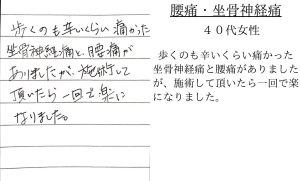 歩くのも辛いくらい痛かった
坐骨神経痛と、腰痛が
ありましたが、施術して
頂いたら一回で楽に
なりました。
腰痛・坐骨神経痛
４０代女性
歩くのも辛いくらい痛かった
坐骨神経痛と腰痛がありました
が、施術して頂いたら一回で楽
になりました。